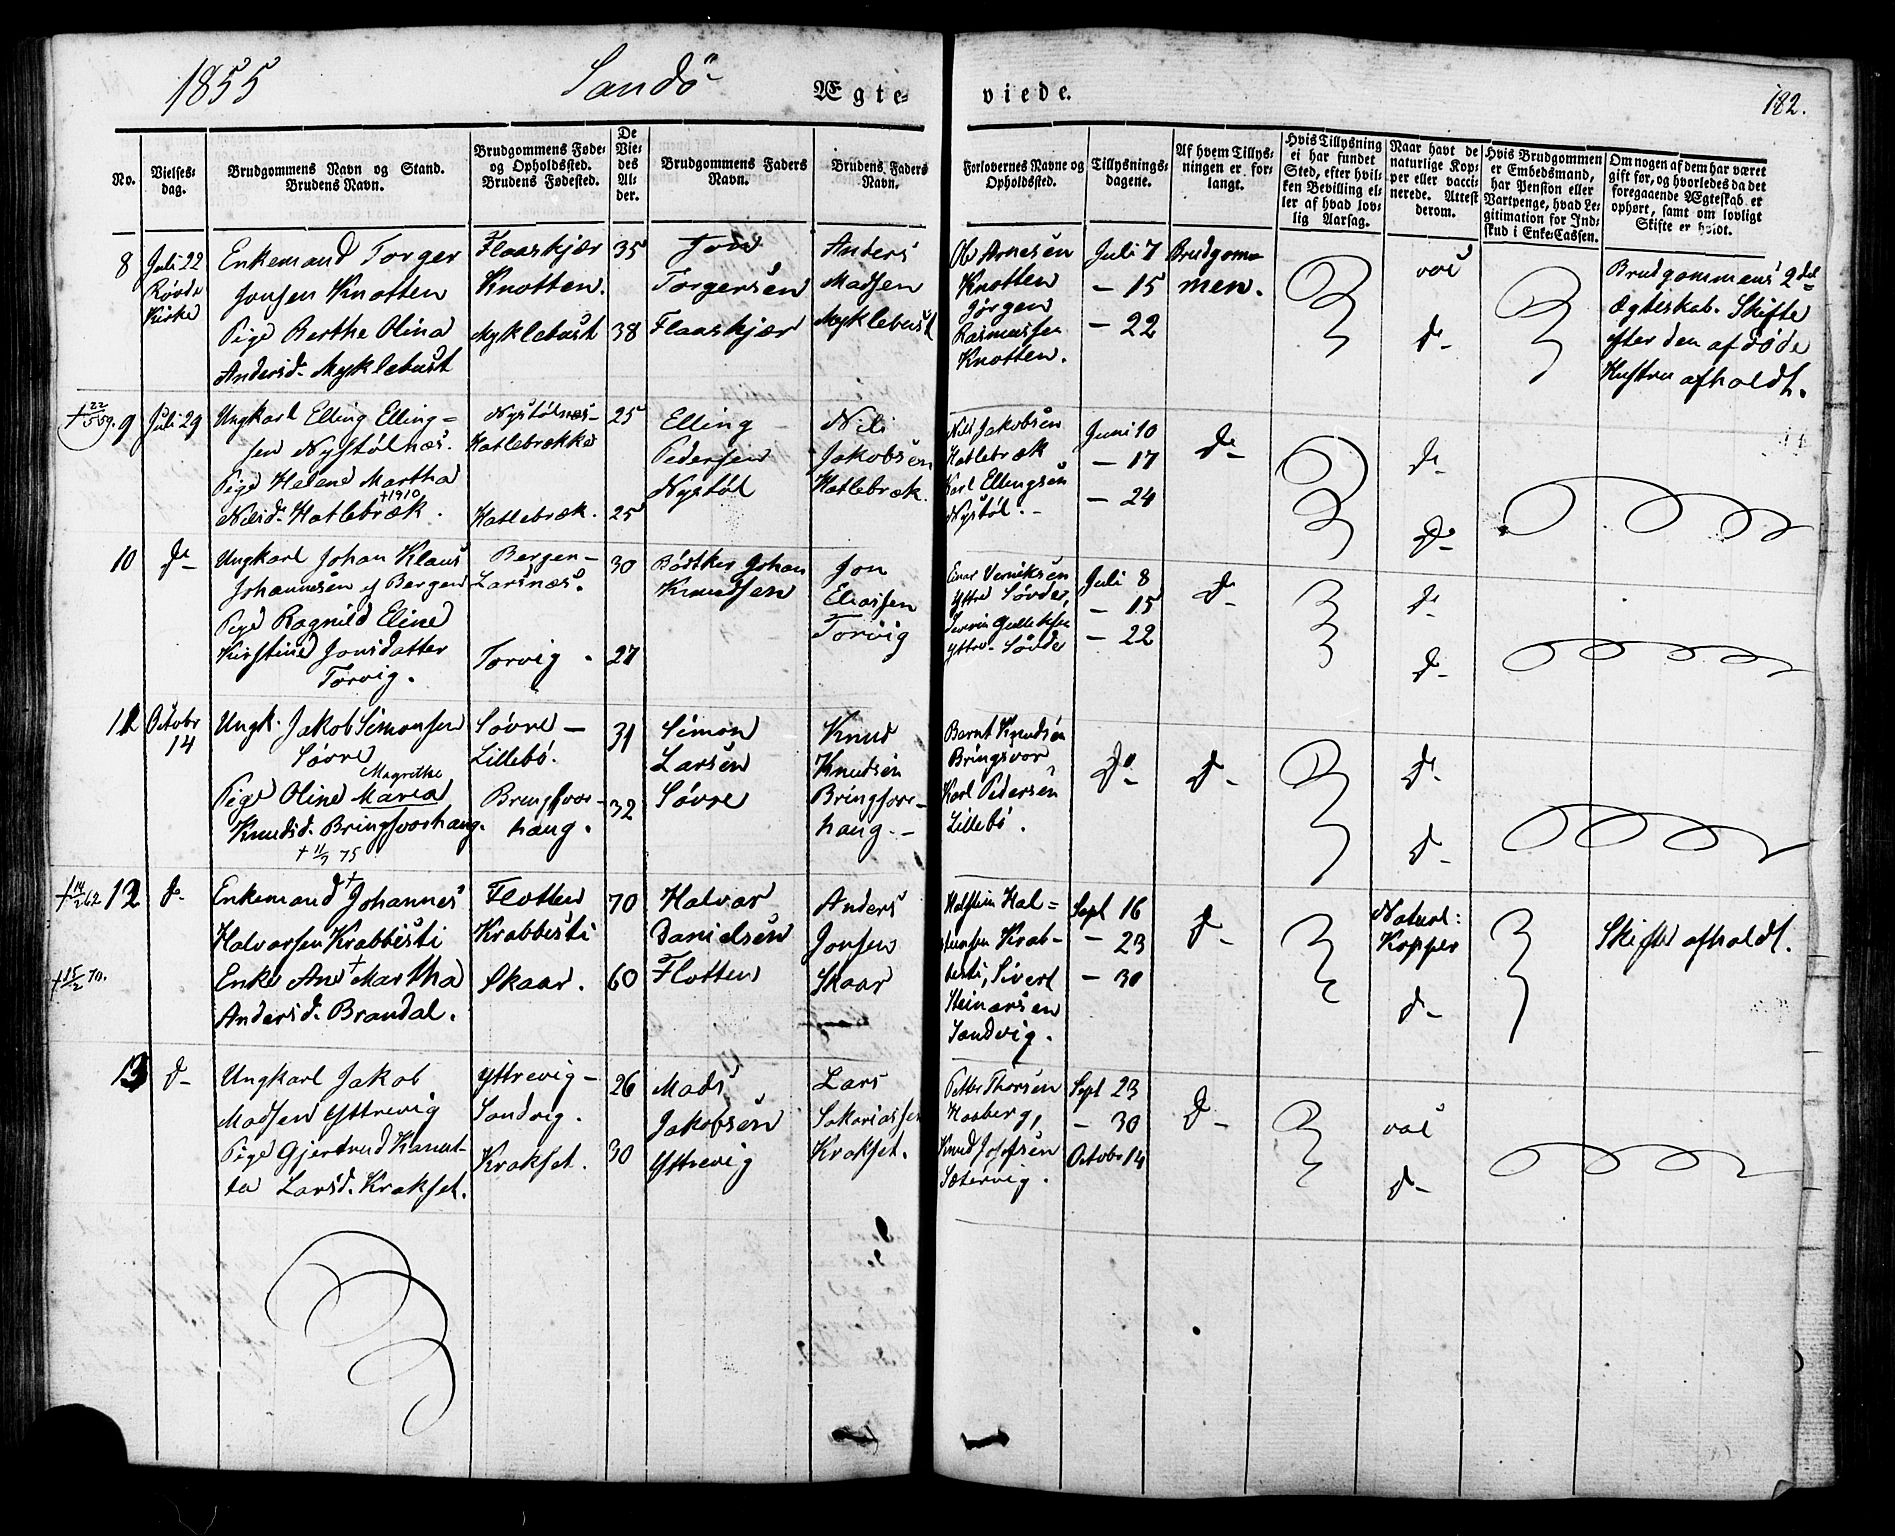 1855
Sandö
Ægte-
viede.
182.
No.
Vielses-
dag.
Brudgommens Navn og Stand.
Brudens Navn.
Brudgommens Føde-
og Opholdssted.
Brudens Fødested.
De
Vie-
des
Al-
der.
Brudgommens Faders
Navn.
Brudens Faders
Navn.
Forlovernes Navne og
Opholdssted.
Tillysnings-
dagene.
Af hvem Tillys-
ningen er for-
langt.
Hvis Tillysning
ei har fundet
Sted, efter hvil-
ken Bevilling el-
ler af hvad lov-
lig Aarsag.
Naar havt de
naturlige Kop-
per eller vacci-
nerede. Attest
derom.
Hvis Brudgommen
er Embedsmand,
har Pension eller
Vartpenge, hvad Le-
gitimation for Ind-
skud i Enke-Cassen.
Om nogen af dem har været
gift før, og hvorledes da det
foregaaende Ægteskab er
ophørt, samt om lovligt
Skifte er holdt.
8
Juli 22
Røvde
Kirke
Enkemand Torger
Jonsen Knotten
Pige Berthe Olina
Andersd. Myklebust
Flaaskjær
Knotten.
Myklebust
35
38
Jon
Torgersen
Flaaskjær
Anders
Madsen
Myklebust
Ole Arnesen
Knotten
Jørgen
Rasmussen
Knotten.
Juli 7
- 15
- 22
Brudgom-
men.
vac
do
Brudgommens 2det
Ægteskab. Skifte
efter den afdøde
Hustru afholdt.
9
Juli 29
Ungkarl Elling Elling-
sen Nystølnæs.
Pige Helene Martha
+1910
Nilsd. Hatlebræk.
Nystølnæs-
Hatlebrække
Hatlebræk.
25
25
Elling
Pedersen
Nystøl
Nils
Jakobsen
Hatlebræk.
Nils Jakobsen
Hatlebræk
Karl Ellingsen
Nystøl.-
Juni 10
- 17
- 24
do
do
do
10
do
Ungkarl Johan Klaus
Johannesen af Bergen
Pige Ragnild Eline
Kirstine Jonsdatter
Torvig.
Bergen-
Larsnæs.
Torvig.
30
27
Bødtker Johan
Knudsen
Jon
Eliassen
Torvig
Einar Verniksen
Yttre Søvde,
Yttre Søvde
Juli 8
- 15
- 22
do
do
do
11
Octobr
14
Ungk. Jakob Simonsen
Søvre
Magrethe
Pige Oline Maria
Knudsd. Bringsvorhaug.
+ 11/7 75
Søvre-
Lillebø.
Bringsvor-
haug.
31
32
Simon
Larsen
Søvre
Knud
Knudsen
Bringsvor-
haug.-
Bernt Knudsen
Bringsvor
Karl Pedersen
Lillebø.
do
do
do
do
12
do
Enkemand Johannes
Halvarsen Krabbesti
Enke Ane Martha
Andersd. Brandal.
+ 15/2 70.
Flotten
Krabbesti
Skaar.
70
60
Halvar
Danielsen
Flotten
Anders
Jonsen
Skaar
Halstein Hal=
steinsen Krab-
besti, Sivert
Steinarsen
Sandvig.
Sept 16
- 23
- 30
do
Naturl:
Kopper
do
Skifte afholdt.
13
do
Ungkarl Jakob
Madsen Yttrevig
Pige Gjertrud Kanut-
ta Larsd. Krakset.
Yttrevig-
Sandvig.
Krakset.
26
30
Mads
Jakobsen
Yttrevig
Lars
Sakariassen
Krakset.
Petter Thorsen
Haaberg,
Knud Josefsen
Sætervig.
Sept 23
- 30
Octobr 14
do
vac
do